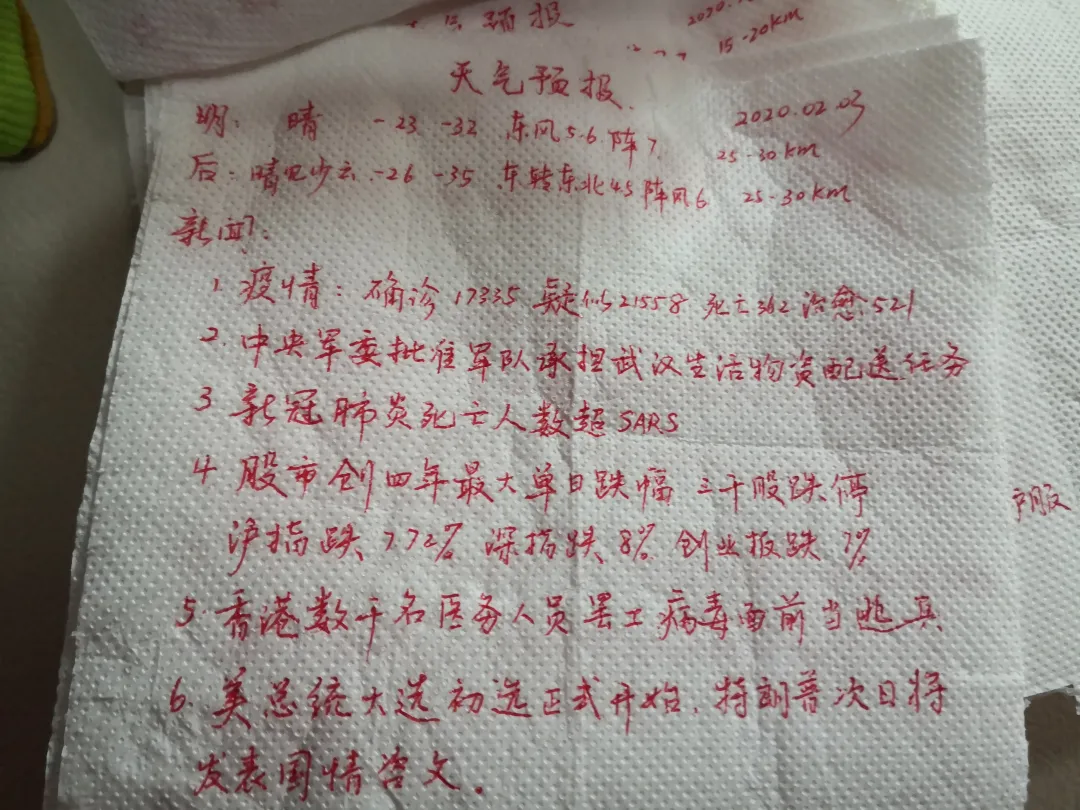 预报
15-20km
天气预报
2020.02.03
明: 晴 -23 -32 东风5-6 阵7 25-30km
后: 晴见少云 -26 -35 东转东北45 阵风6 25-30km
新闻:
1 疫情: 确诊17335 疑似21558 死亡362 治愈:521
2 中央军委批准军队承担武汉生活物资配送任务
3 新冠肺炎死亡人数超SARS
4 股市创四年最大单日跌幅 三千股跌停
沪指跌 7.72% 深指跌 8% 创业报跌 7%
5. 香港数千名医务人员罢工病毒面前当逃兵
6. 美总统大选初选正式开始. 特朗普次日将
发表国情咨文.